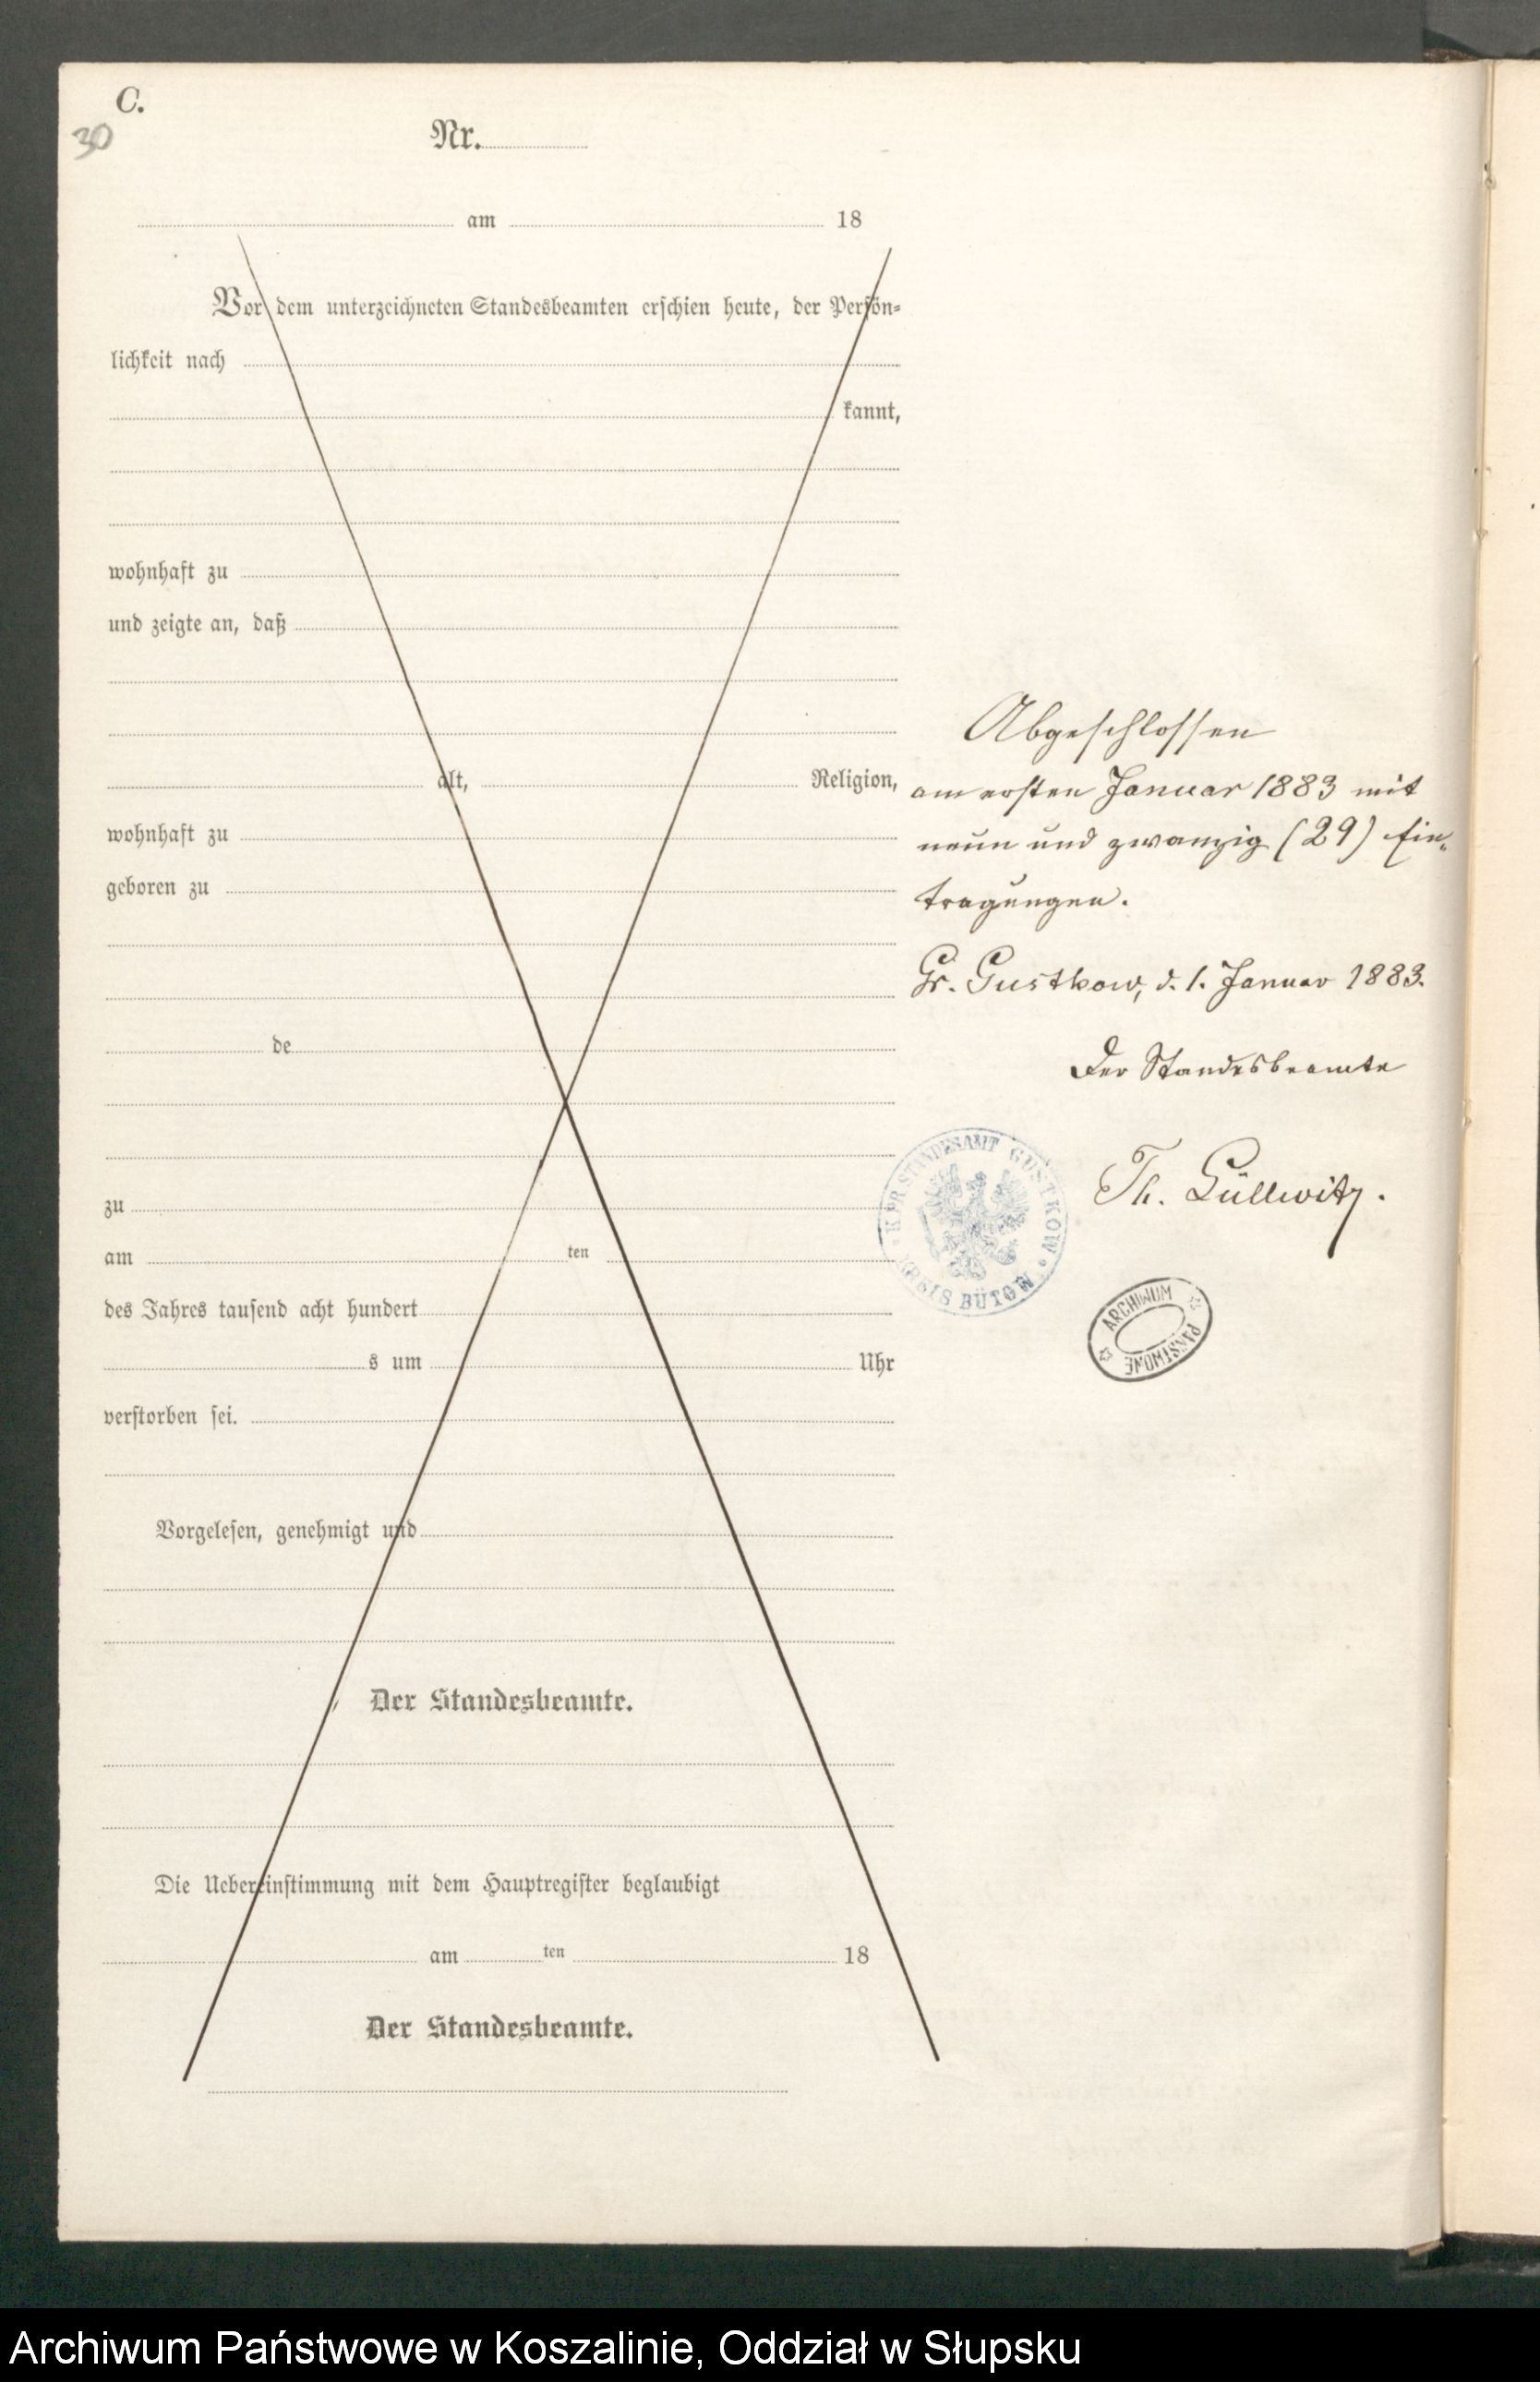 C.
30
Nr.
am 18
Vor dem unterzeichneten Standesbeamten erschien heute, der Persön-
lichkeit nach
kannt,
wohnhaft zu
und zeigte an, daß
alt, Religion,
wohnhaft zu
geboren zu
de
zu
am ten
des Jahres tausend acht hundert
s um Uhr
verstorben sei.
Vorgelesen, genehmigt und
Der Standesbeamte.
Die Uebereinstimmung mit dem Hauptregister beglaubigt
am ten 18
Der Standesbeamte.
Abgeschlossen
am ersten Januar 1883 mit
neun und zwanzig (29) Ein-
tragungen.
Gr. Gustkow, d. 1. Januar 1883.
Der Standesbeamte
Th. Güllwitz.
K. PR. STANDESAMT GUSTKOW
KREIS BÜTOW
ARCHIWUM
PAŃSTWOWE
Archiwum Państwowe w Koszalinie, Oddział w Słupsku